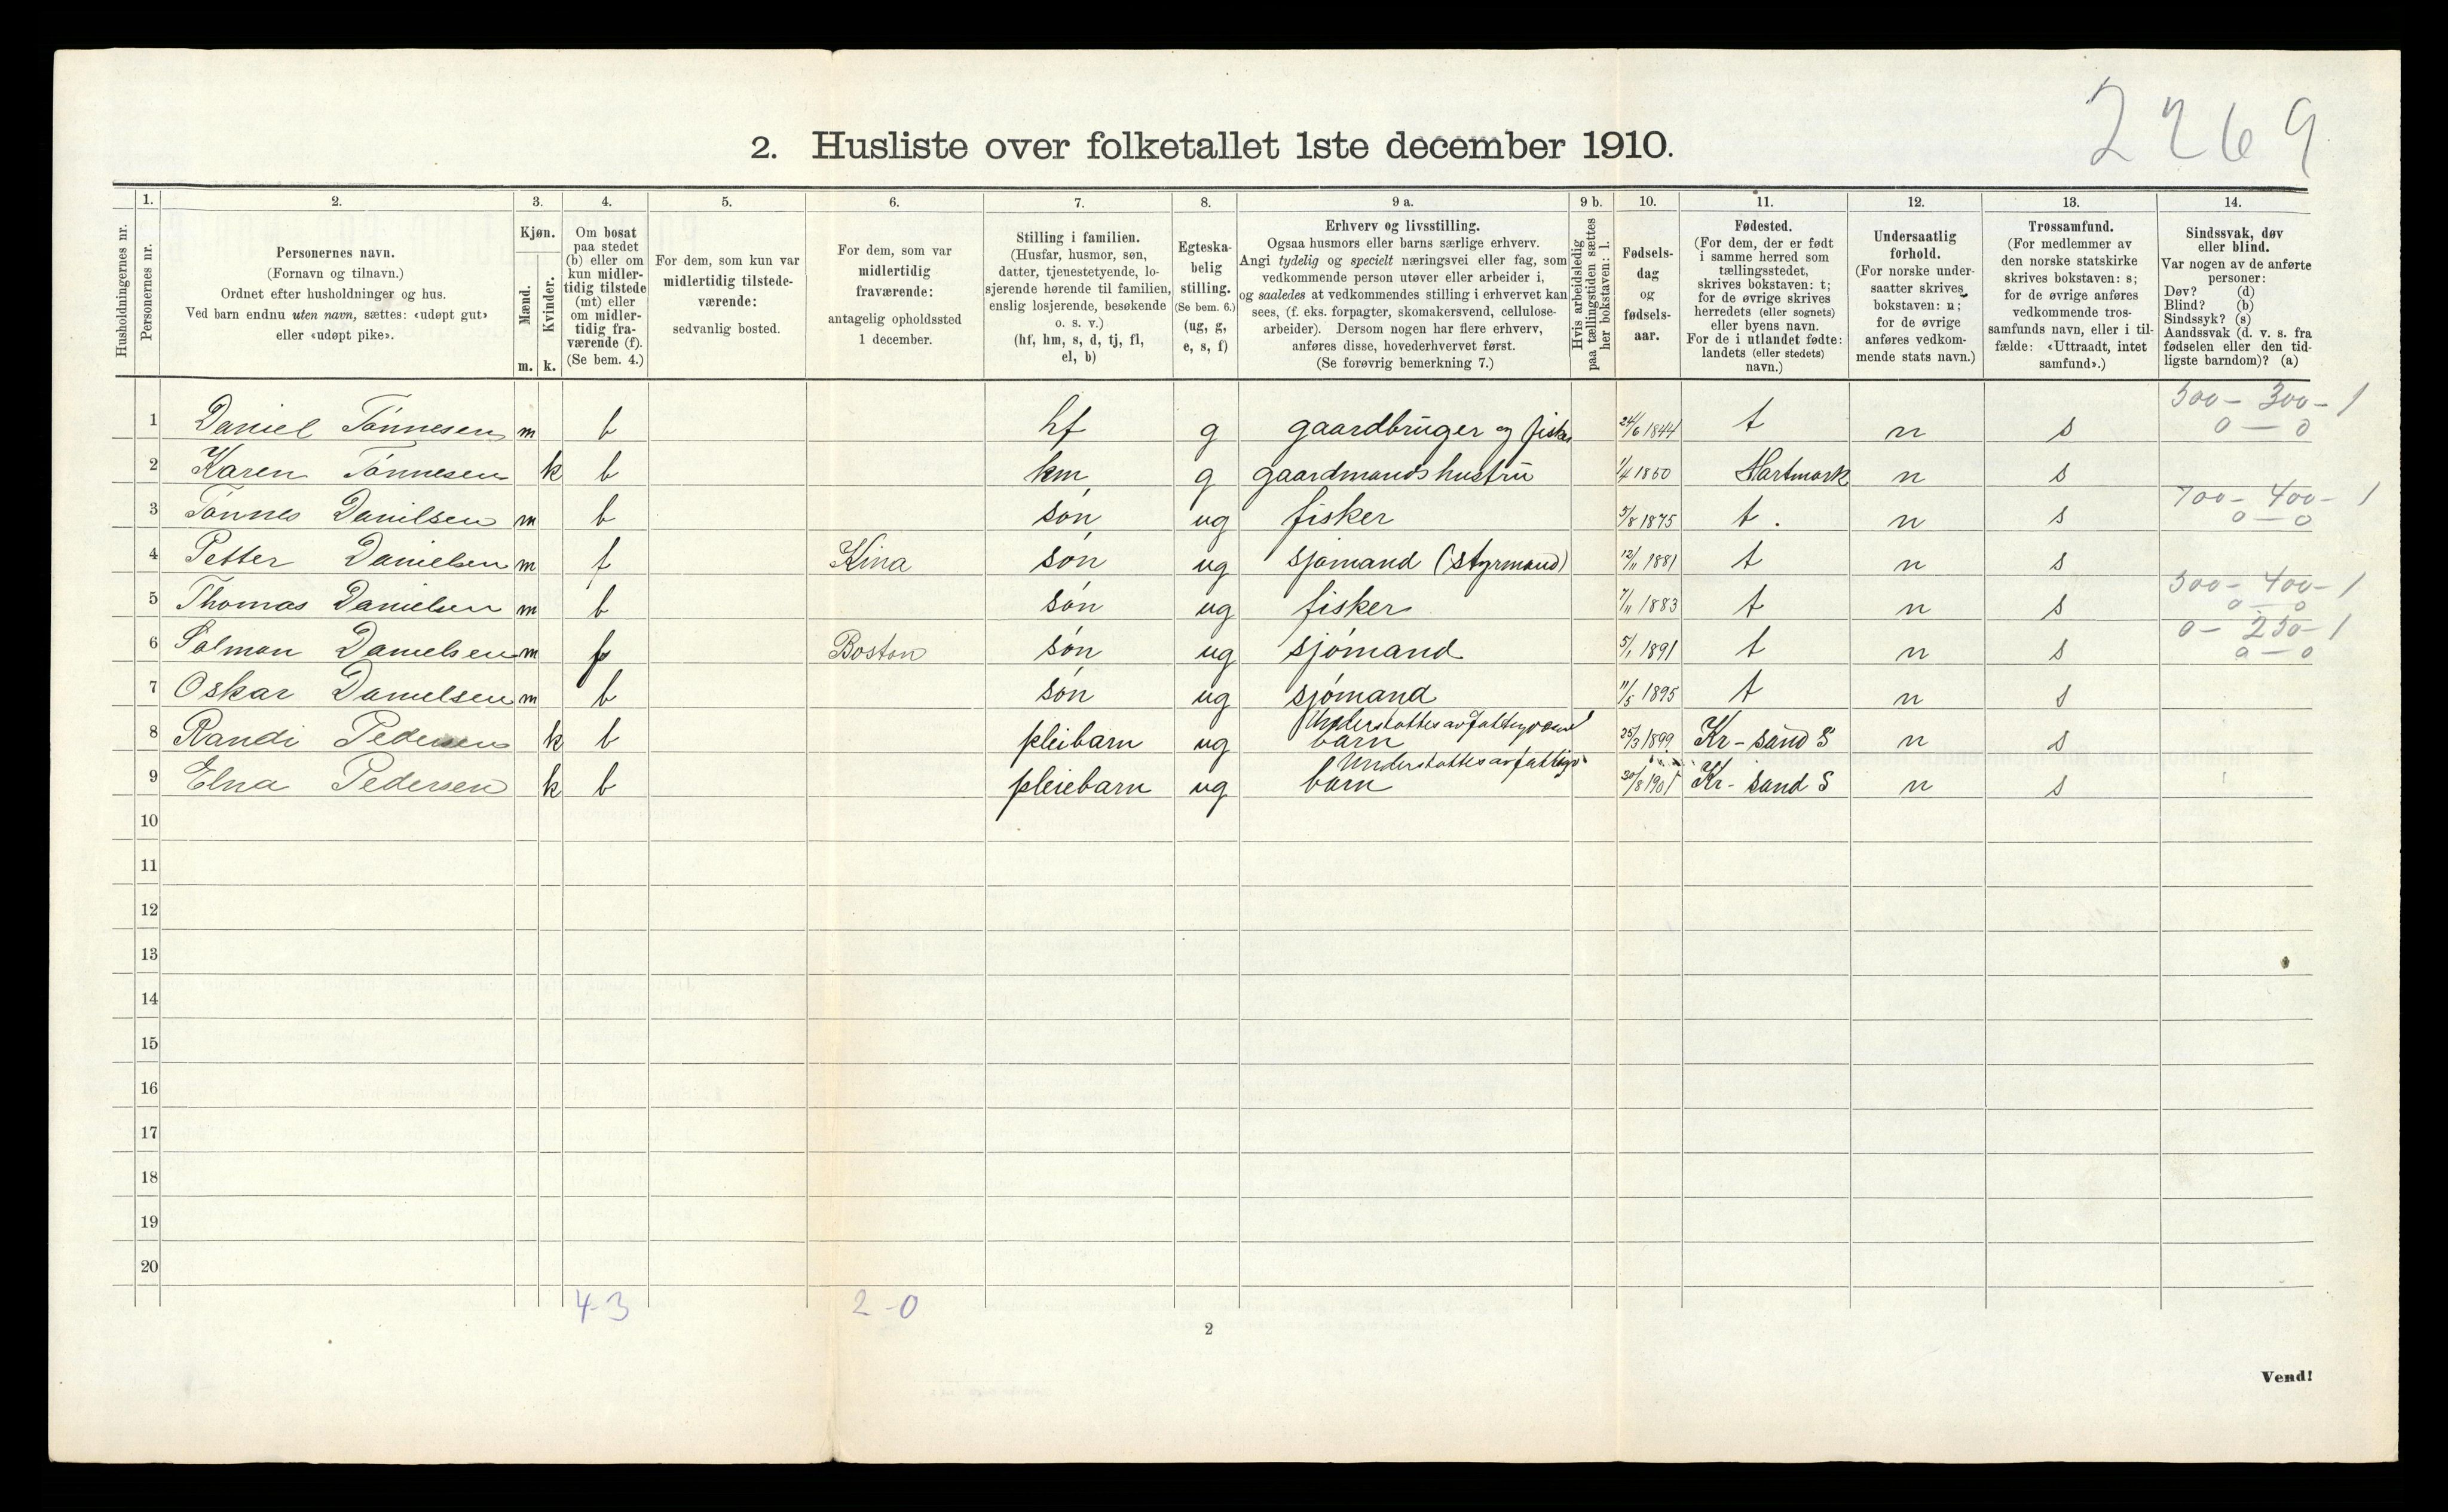 2269
2. Husliste over folketallet 1ste december 1910.
Husholdningernes nr.
1.
Personernes nr.
2.
Personernes navn.
(Fornavn og tilnavn.)
Ordnet efter husholdninger og hus.
Ved barn endnu uten navn, sættes: «udøpt gut»
eller «udøpt pike».
3.
Kjøn.
Mænd.
Kvinder.
m. k.
4.
Om bosat
paa stedet
(b) eller om
kun midler-
tidig tilstede
(mt) eller
om midler-
tidig fra-
værende (f).
(Se bem. 4.)
5.
For dem, som kun var
midlertidig tilstede-
værende:
sedvanlig bosted.
6.
For dem, som var
midlertidig
fraværende:
antagelig opholdssted
1 december.
7.
Stilling i familien.
(Husfar, husmor, søn,
datter, tjenestetyende, lo-
sjerende hørende til familien,
enslig losjerende, besøkende
o. s. v.)
(hf, hm, s, d, tj, fl,
el, b)
8.
Egteska-
belig
stilling.
(Se bem. 6.)
(ug, g,
e, s, f)
9 a.
Erhverv og livsstilling.
Ogsaa husmors eller barns særlige erhverv.
Angi tydelig og specielt næringsvei eller fag, som
vedkommende person utøver eller arbeider i,
og saaledes at vedkommendes stilling i erhvervet kan
sees, (f. eks. forpagter, skomakersvend, cellulose-
arbeider). Dersom nogen har flere erhverv,
anføres disse, hovederhvervet først.
(Se forøvrig bemerkning 7.)
9 b.
Hvis arbeidsledig
paa tællingstiden sættes
her bokstaven: l.
10.
Fødsels-
dag
og
fødsels-
aar.
11.
Fødested.
(For dem, der er født
i samme herred som
tællingsstedet,
skrives bokstaven: t;
for de øvrige skrives
herredets (eller sognets)
eller byens navn.
For de i utlandet fødte:
landets (eller stedets)
navn.)
12.
Undersaatlig
forhold.
(For norske under-
saatter skrives
bokstaven: n;
for de øvrige
anføres vedkom-
mende stats navn.)
13.
Trossamfund.
(For medlemmer av
den norske statskirke
skrives bokstaven: s;
for de øvrige anføres
vedkommende tros-
samfunds navn, eller i til-
fælde: «Uttraadt, intet
samfund».)
14.
Sindssvak, døv
eller blind.
Var nogen av de anførte
personer:
Døv? (d)
Blind? (b)
Sindssyk? (s)
Aandssvak (d. v. s. fra
fødselen eller den tid-
ligste barndom)? (a)
1 Daniel Tønnesen m b hf g gaardbruger og fisker 24/6 1844 t n s 500 - 300 - 1
0 - 0
2 Karen Tønnesen k b hm g gaardmands hustru 1/4 1850 Hartmark n s
3 Tønnes Danilsen m b søn ug fisker 5/8 1875 t. n s 700 - 400 - 1
0 - 0
4 Petter Danielsen m f Kina søn ug sjømand (styrmand) 12/11 1881 t n s
5 Thomas Danielsen m b søn ug fisker 7/11 1883 t n s 500 - 400 - 1
0 - 0
6 Salmon Danielsen m f Boston søn ug sjømand 5/1 1891 t n s 0 - 250 - 1
0 - 0
7 Oskar Danielsen m b søn ug sjømand 11/5 1895 t n s
8 Randi Pedersen k b pleibarn ug Understøttes av fattigvæsnet
barn 25/3 1899 Kr-sand S n s
9 Elna Pedersen k b pleiebarn ug Understøttes av fattigv.
barn 30/8 1901 Kr-sand S n s
10
11
12
13
14
15
16
17
18
19
20
4-3 2-0
2
Vend!